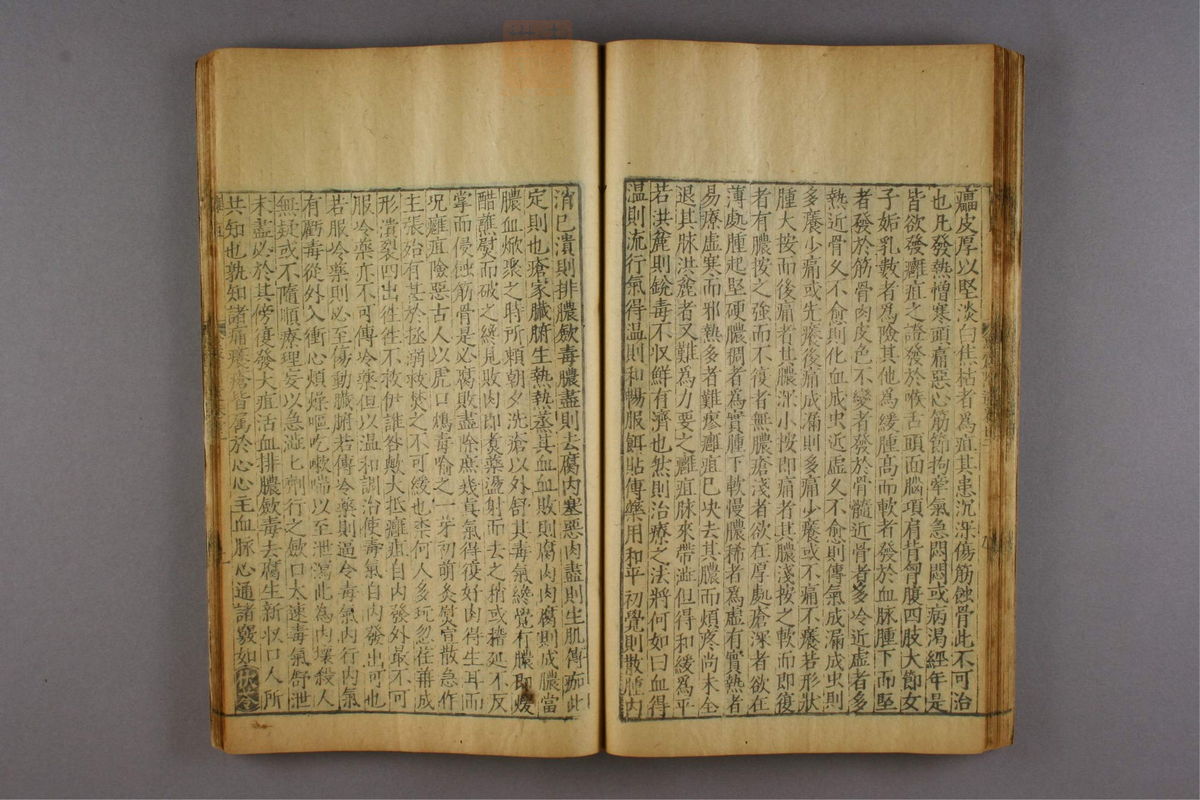 癟皮厚以堅淡白焦枯者為疽其患沉深傷筋蝕骨此不可治
也凡發熱憎寒頭痛惡心筋節拘攣氣急悶悶或病渴經年是
皆欲發癰疽之證發於喉舌頭面腦項肩背胷腹四肢大節女
子妬乳數者為險其他為緩腫高而軟者發於血脉腫下而堅
者發於筋骨肉皮色不變者發於骨髓近骨者多冷近虛者多
熱近骨久不愈則化血成虫近虛久不愈則傳氣成漏成虫則
多癢少痛或先癢後痛成漏則多痛少癢或不痛不癢若形狀
腫大按而後痛者其膿深小按即痛者其膿淺按之軟而即復
者有膿按之強而不復者無膿瘡淺者欲在厚處瘡深者欲在
薄處腫起堅硬膿稠者為實腫下軟慢膿稀者為虛有實熱者
易療虛寒而邪熱多者難瘳癰疽已决去其膿而煩疼尚未全
退其脉洪麄者又難為力要之癰疽脉來帶澁但得和緩為平
若洪麄則銳毒不収鮮有濟也然則治療之法將何如曰血得
温則流行氣得温則和暢服餌貼傅藥用和平初覺則散腫內
消已潰則排膿歛毒膿盡則去腐內塞惡肉盡則生肌傅痂此
定則也瘡家臟腑生熱熱蒸其血血敗則腐肉肉腐則成膿當
膿血焮聚之時所頼朝夕洗瘡以外舒其毒氣纔覺有膿即煖
醋蘸熨而破之纔見敗肉即煮藥盪射而去之稍或稽延不反
掌而侵蝕筋骨是必腐敗盡除庶幾真氣得復好肉得生耳而
况癰疽險惡古人以虎口鴆毒喻之一芽初萌灸熨宣散急作
主張殆有甚於拯溺救焚之不可緩也柰何人多玩忽荏苒成
形潰裂四出往往不救伊誰咎歟大抵癰疽自內發外最不可
服冷藥亦不可傅冷藥但以温和調治使毒氣自內發出可也
若服冷藥則必至傷動臟腑若傅冷藥則逼令毒氣內行內氣
有虧毒從外入衝心煩燥嘔吃嗽喘以至泄瀉此為內壞殺人
無疑或不隨順療理妄以急澁匕劑行之歛口太速毒氣舒泄
未盡必於其傍復發大疽活血排膿歛毒去腐生新収口人所
共知也孰知諸痛癢瘡皆属於心心主血脉心通諸竅如